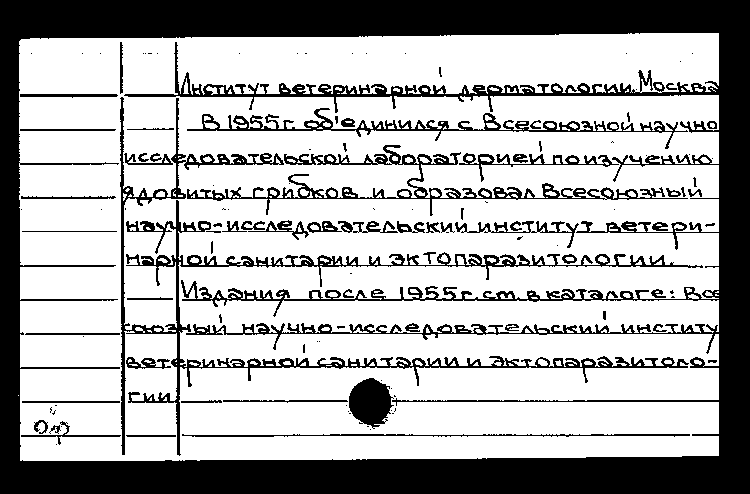 Институт ветеринарной дерматологии. Москва
В 1955 г. объединился с Всесоюзной научно
исследовательской лабораторией по изучению
ядовитых грибков и образовал Всесоюзный
научно-исследовательский институт ветери-
нарной санитарии и эктопаразитологии.
Издания после 1955 г. см. в каталоге: Все
союзный научно-исследовательский институ
ветеринарной санитарии и эктопаразитоло-
гии